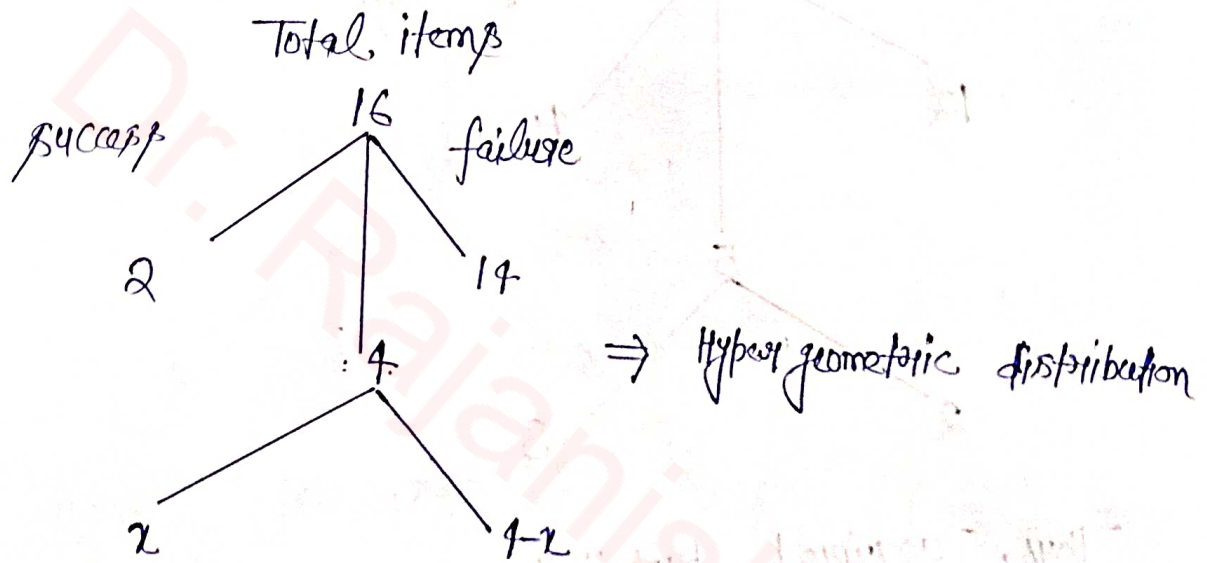 Total items
16
success failure
2 14
4
⇒ Hyper geometric distribution
x 4-x
Dr. Rajanis